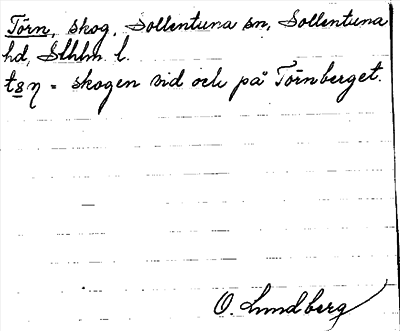 Törn, skog, Sollentuna sn, Sollentuna
hd, Sthlm l.
skogen vid och på Törnberget.
O. Lundberg